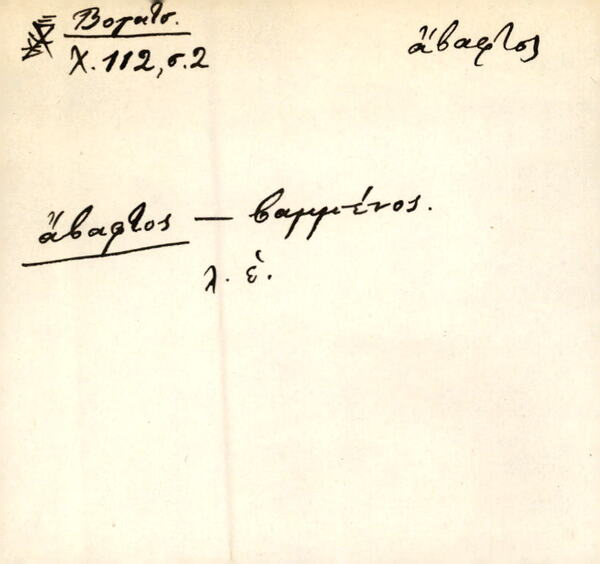 Βογατσ.
ἄβαφτος
Χ. 112, σ. 2
ἄβαφτος — βαμμένος.
λ. ἐ.